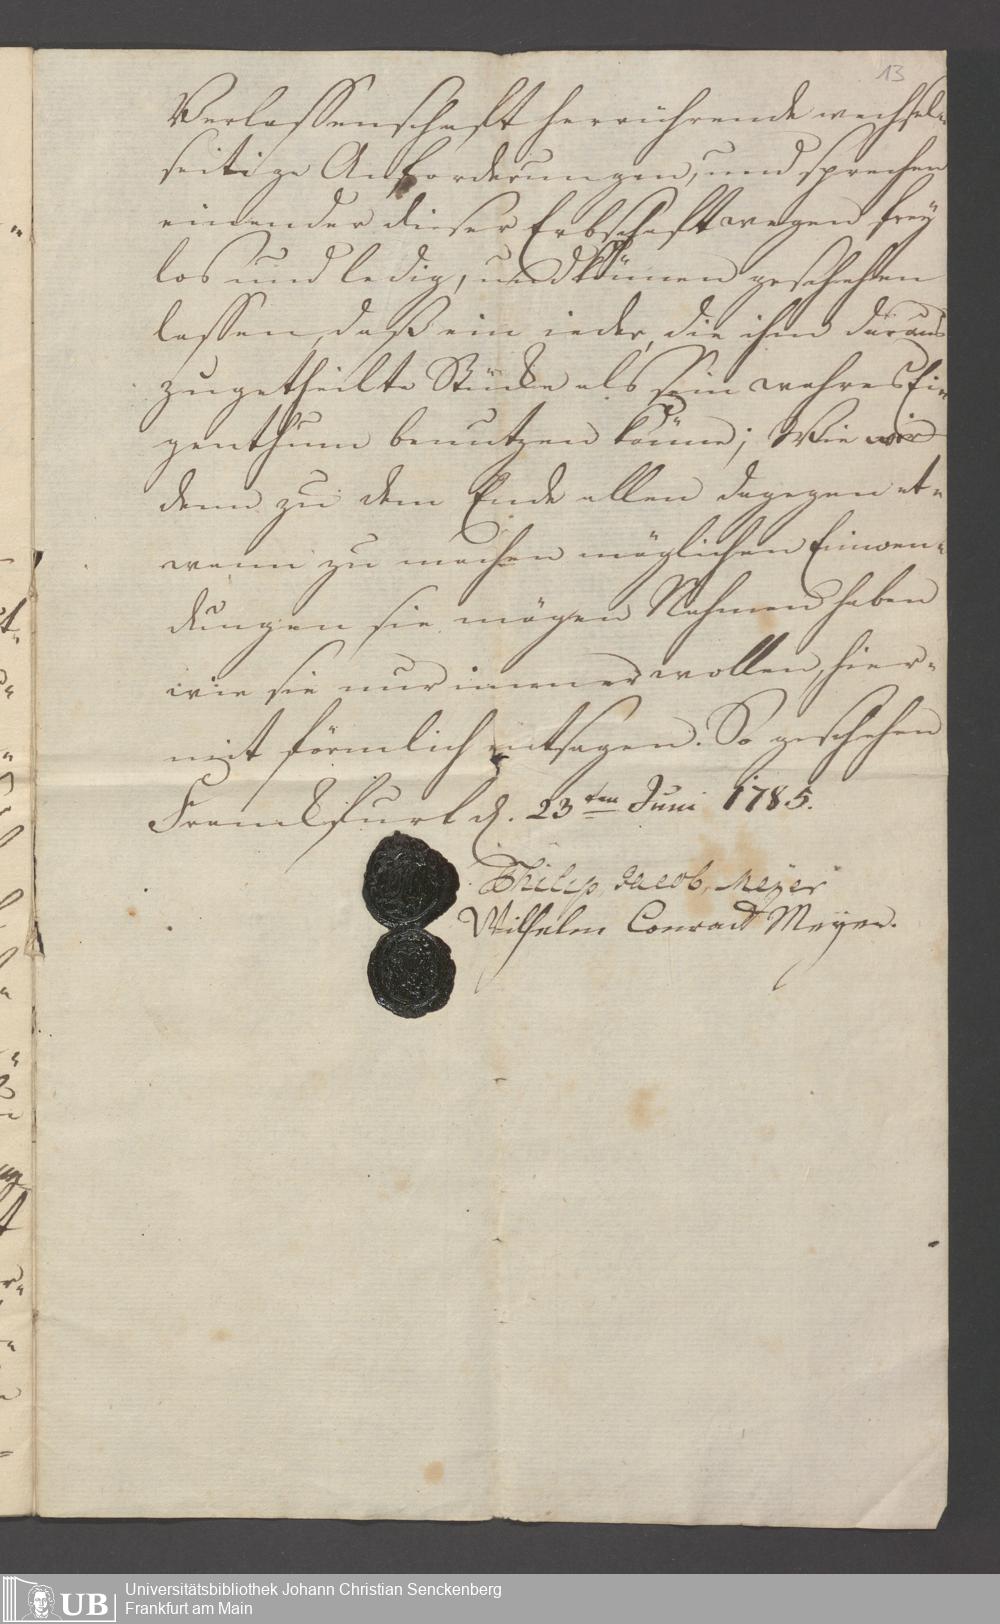 13
Verlassenschaft herrührende wechsel-
seitige Anforderungen, und sprechen
einander dieser Erbschaft wegen frey
los und ledig, und können geschehen
lassen, daß ein ieder, die ihm daraus
zugetheilte Stücke als sein wahres Ei-
genthum benutzen könne; Wie wir
denn zu dem Ende allen dagegen et-
wann zu machen möglichen Einwen-
dungen sie mögen Nahmen haben
wie sie nur immer wollen, hier-
mit förmlich entsagen. So geschehen
Franckfurt d. 23ten Juni 1785.
Philip, Jacob, Meyer
Wilhelm Conrad Meyer.
UB
Universitätsbibliothek Johann Christian Senckenberg
Frankfurt am Main